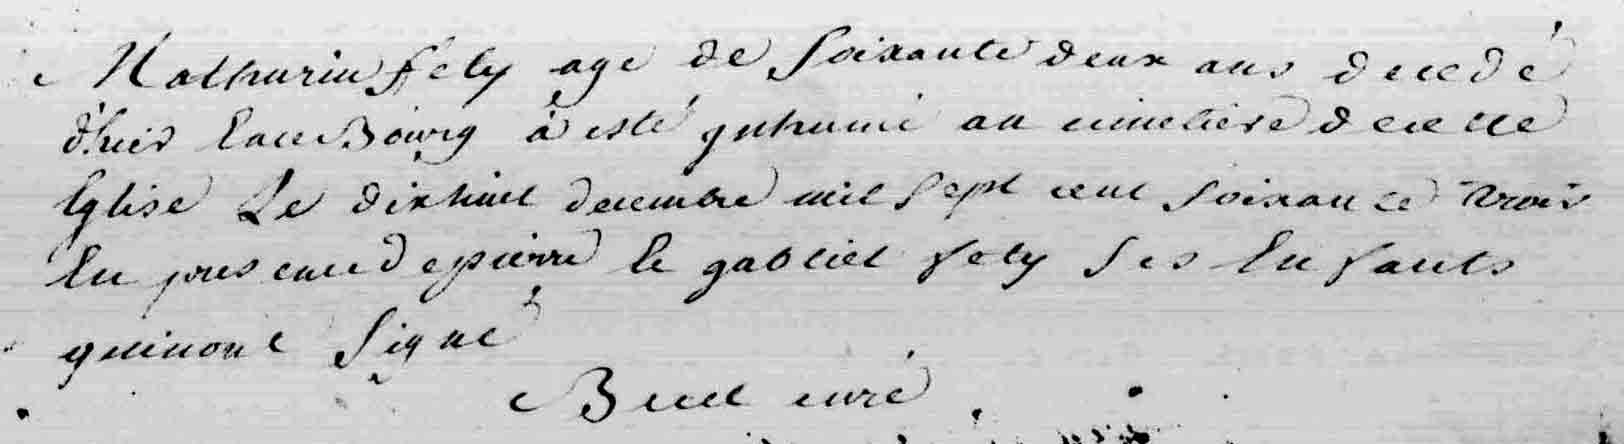 Mathurin fely age de soixante deux ans decedé
d'hier En ce Bourg à esté ynhumé au cimetiere de cette
Eglise Le dixhuit decembre mil sept cent soixante trois
En presence de pierre Et gabriel fely ses Enfants
qui nont signé
curé